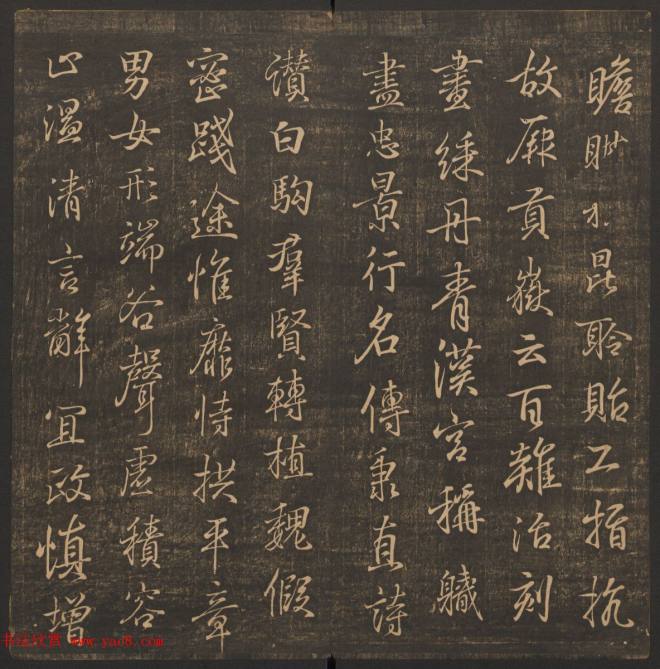 瞻眺才昆聆貽工指執
故厥貢嶽云百治刻
畫綵丹青漢宮稱軄
盡忠景行名傳秉直詩
讚白駒羣賢轉植魏假
密踐途惟靡恃拱平章
男女形端谷聲虛積容
止溫清言辭宜政慎增
书法欣赏 www.yac8.com